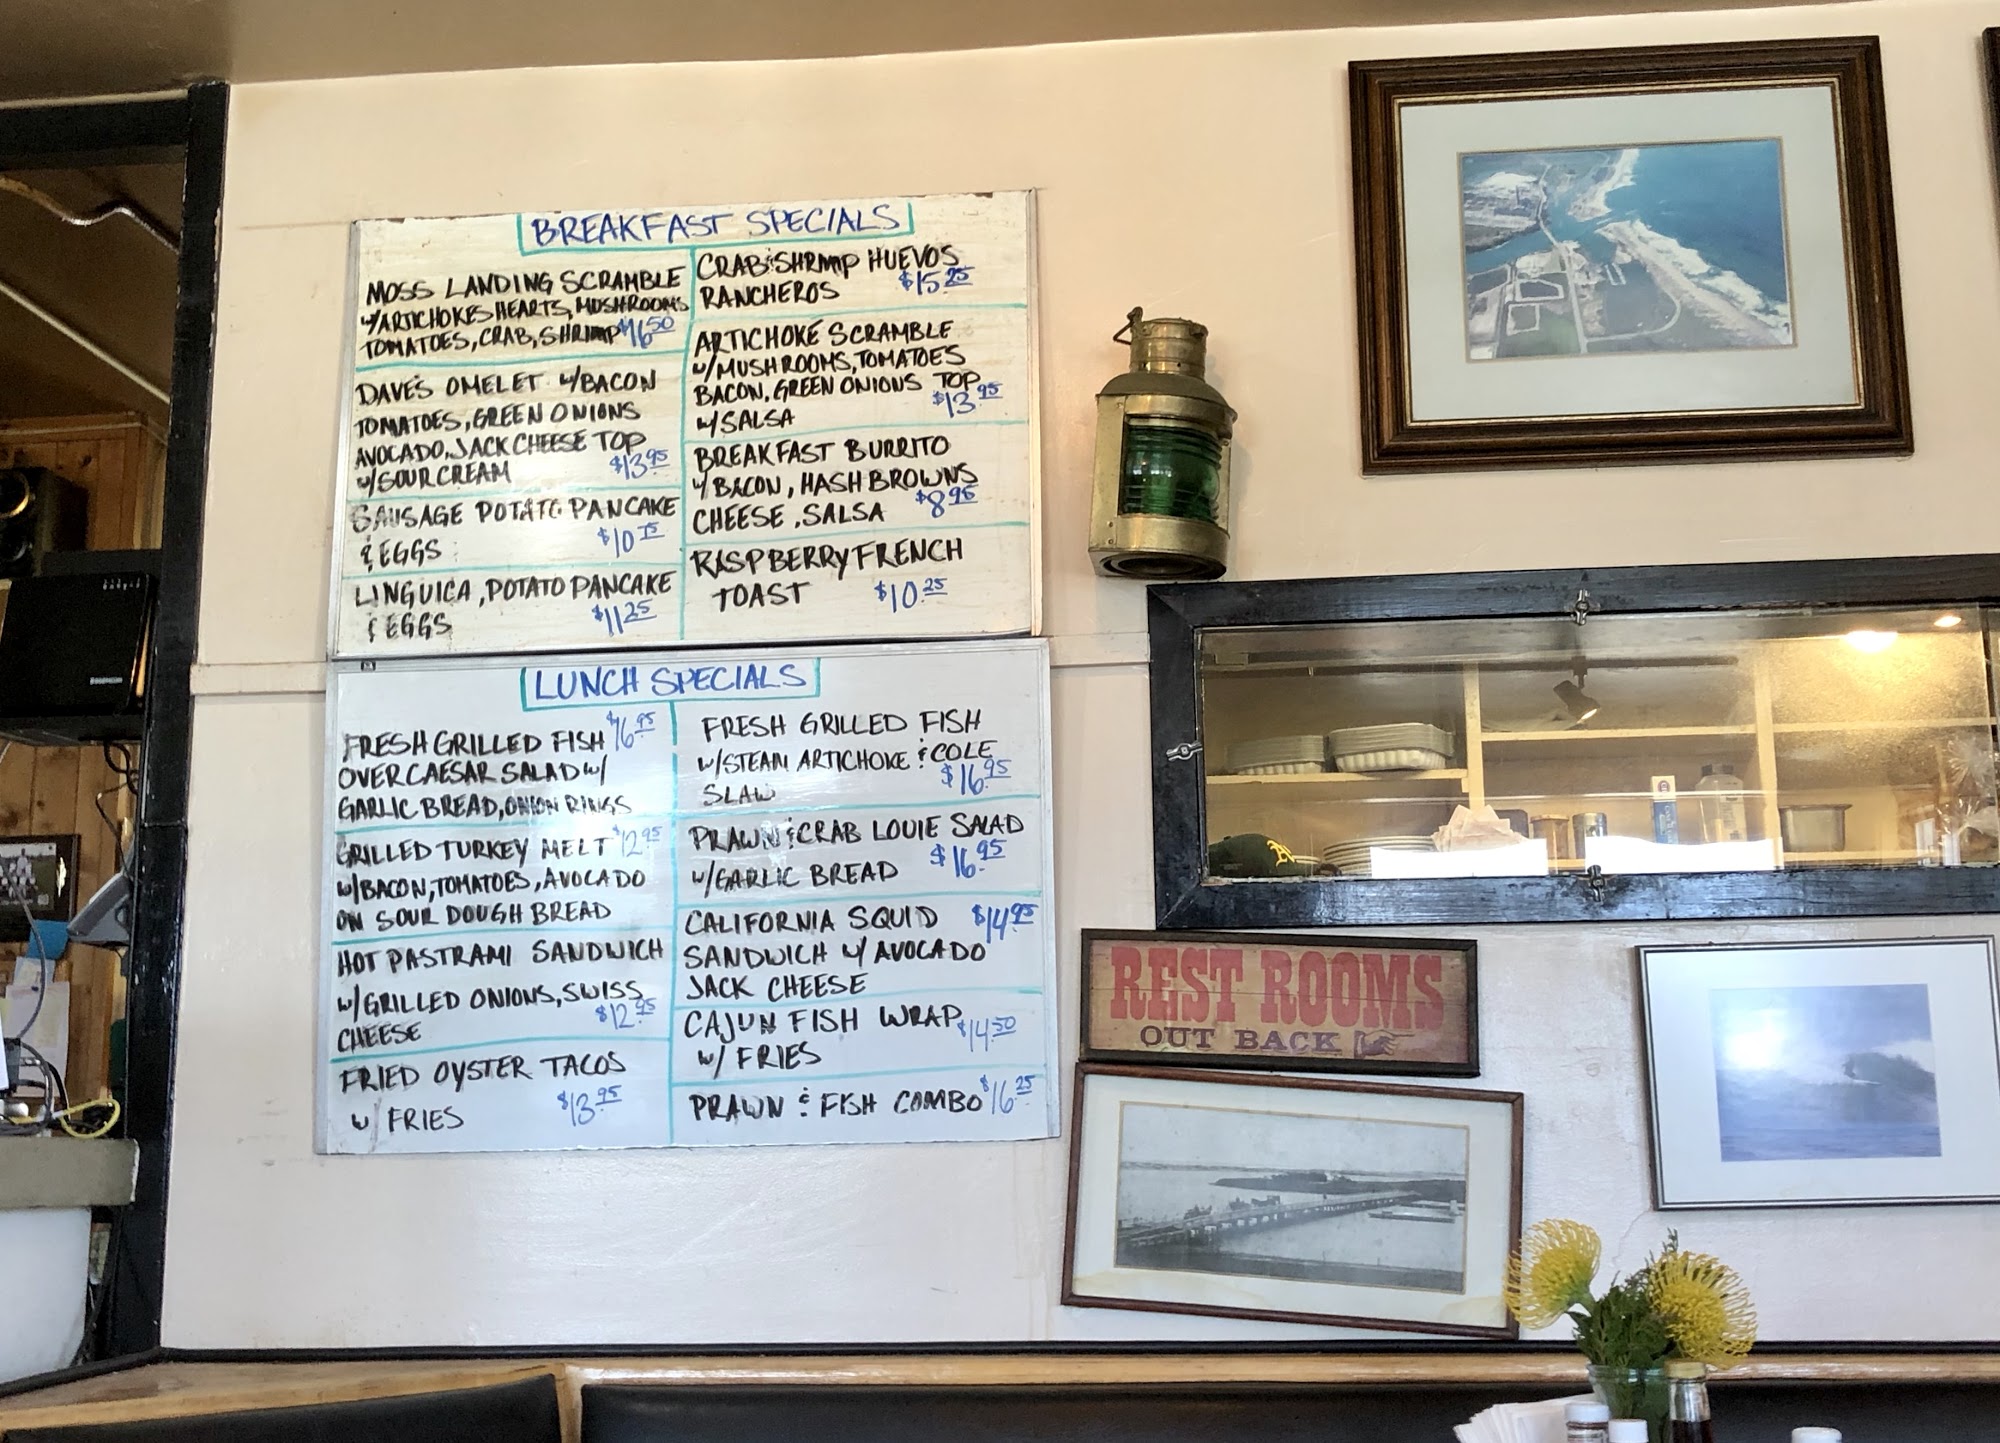 BREAKFAST SPECIALS
MOSS LANDING SCRAMBLE
w/ARTICHOKES HEARTS, MUSHROOMS
TOMATOES, CRAB, SHRIMP $16.50
DAVE'S OMELET w/BACON
TOMATOES, GREEN ONIONS
AVOCADO, JACK CHEESE TOP
w/SOUR CREAM $13.95
SAUSAGE POTATO PANCAKE
& EGGS $10.75
LINGUICA, POTATO PANCAKE
& EGGS $11.25
CRAB & SHRIMP HUEVOS
RANCHEROS $15.25
ARTICHOKE SCRAMBLE
w/MUSHROOMS, TOMATOES
BACON, GREEN ONIONS TOP
w/SALSA $13.95
BREAKFAST BURRITO
w/BACON, HASH BROWNS
CHEESE, SALSA $8.95
RASPBERRY FRENCH
TOAST $10.25
LUNCH SPECIALS
FRESH GRILLED FISH $16.95
OVER CAESAR SALAD w/
GARLIC BREAD, ONION RINGS
GRILLED TURKEY MELT $12.95
w/BACON, TOMATOES, AVOCADO
ON SOUR DOUGH BREAD
HOT PASTRAMI SANDWICH
w/GRILLED ONIONS, SWISS
CHEESE $12.95
FRIED OYSTER TACOS
w/ FRIES $13.95
FRESH GRILLED FISH
w/STEAM ARTICHOKE & COLE
SLAW $16.95
PRAWN & CRAB LOUIE SALAD
w/GARLIC BREAD $16.95
CALIFORNIA SQUID $14.95
SANDWICH w/ AVOCADO
JACK CHEESE
CAJUN FISH WRAP $14.50
w/ FRIES
PRAWN & FISH COMBO $16.25
REST ROOMS
OUT BACK